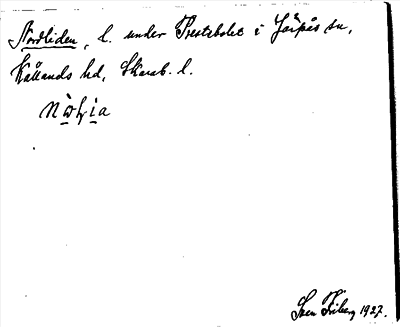 Nordliden, l. under Prestebolet i Järpås sn,
Kållands hd, Skarab. l.
Sven Friberg 1927.